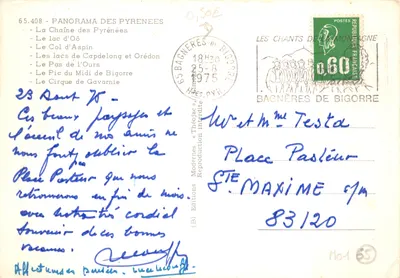 65.408 - PANORAMA DES PYRENEES
- La Chaîne des Pyrénées
- Le lac d'Oô
- Le Col d'Aspin
- Les lacs de Capdelong et Grédon
- Le Pas de l'Ours
- Le Pic du Midi de Bigorre
- Le Cirque de Gavarnie
23 Aout 75 -
Ces beaux paysages et
l'accueil de nos amis ne
nous font oublier la
Place Pasteur que nous
retrouverons en fin de mois.
avec notre très cordial
Souvenir de ces bonnes
vacances.
65 BAGNERES DE BIGORRE
18H
25-8
1975
LES CHANTS DE MONTAGNE
BAGNÈRES DE BIGORRE
POSTES
0,60
FRANÇAISE
Mr et Mme Testa
Place Pasteur
STE MAXIME s/m
83120
65